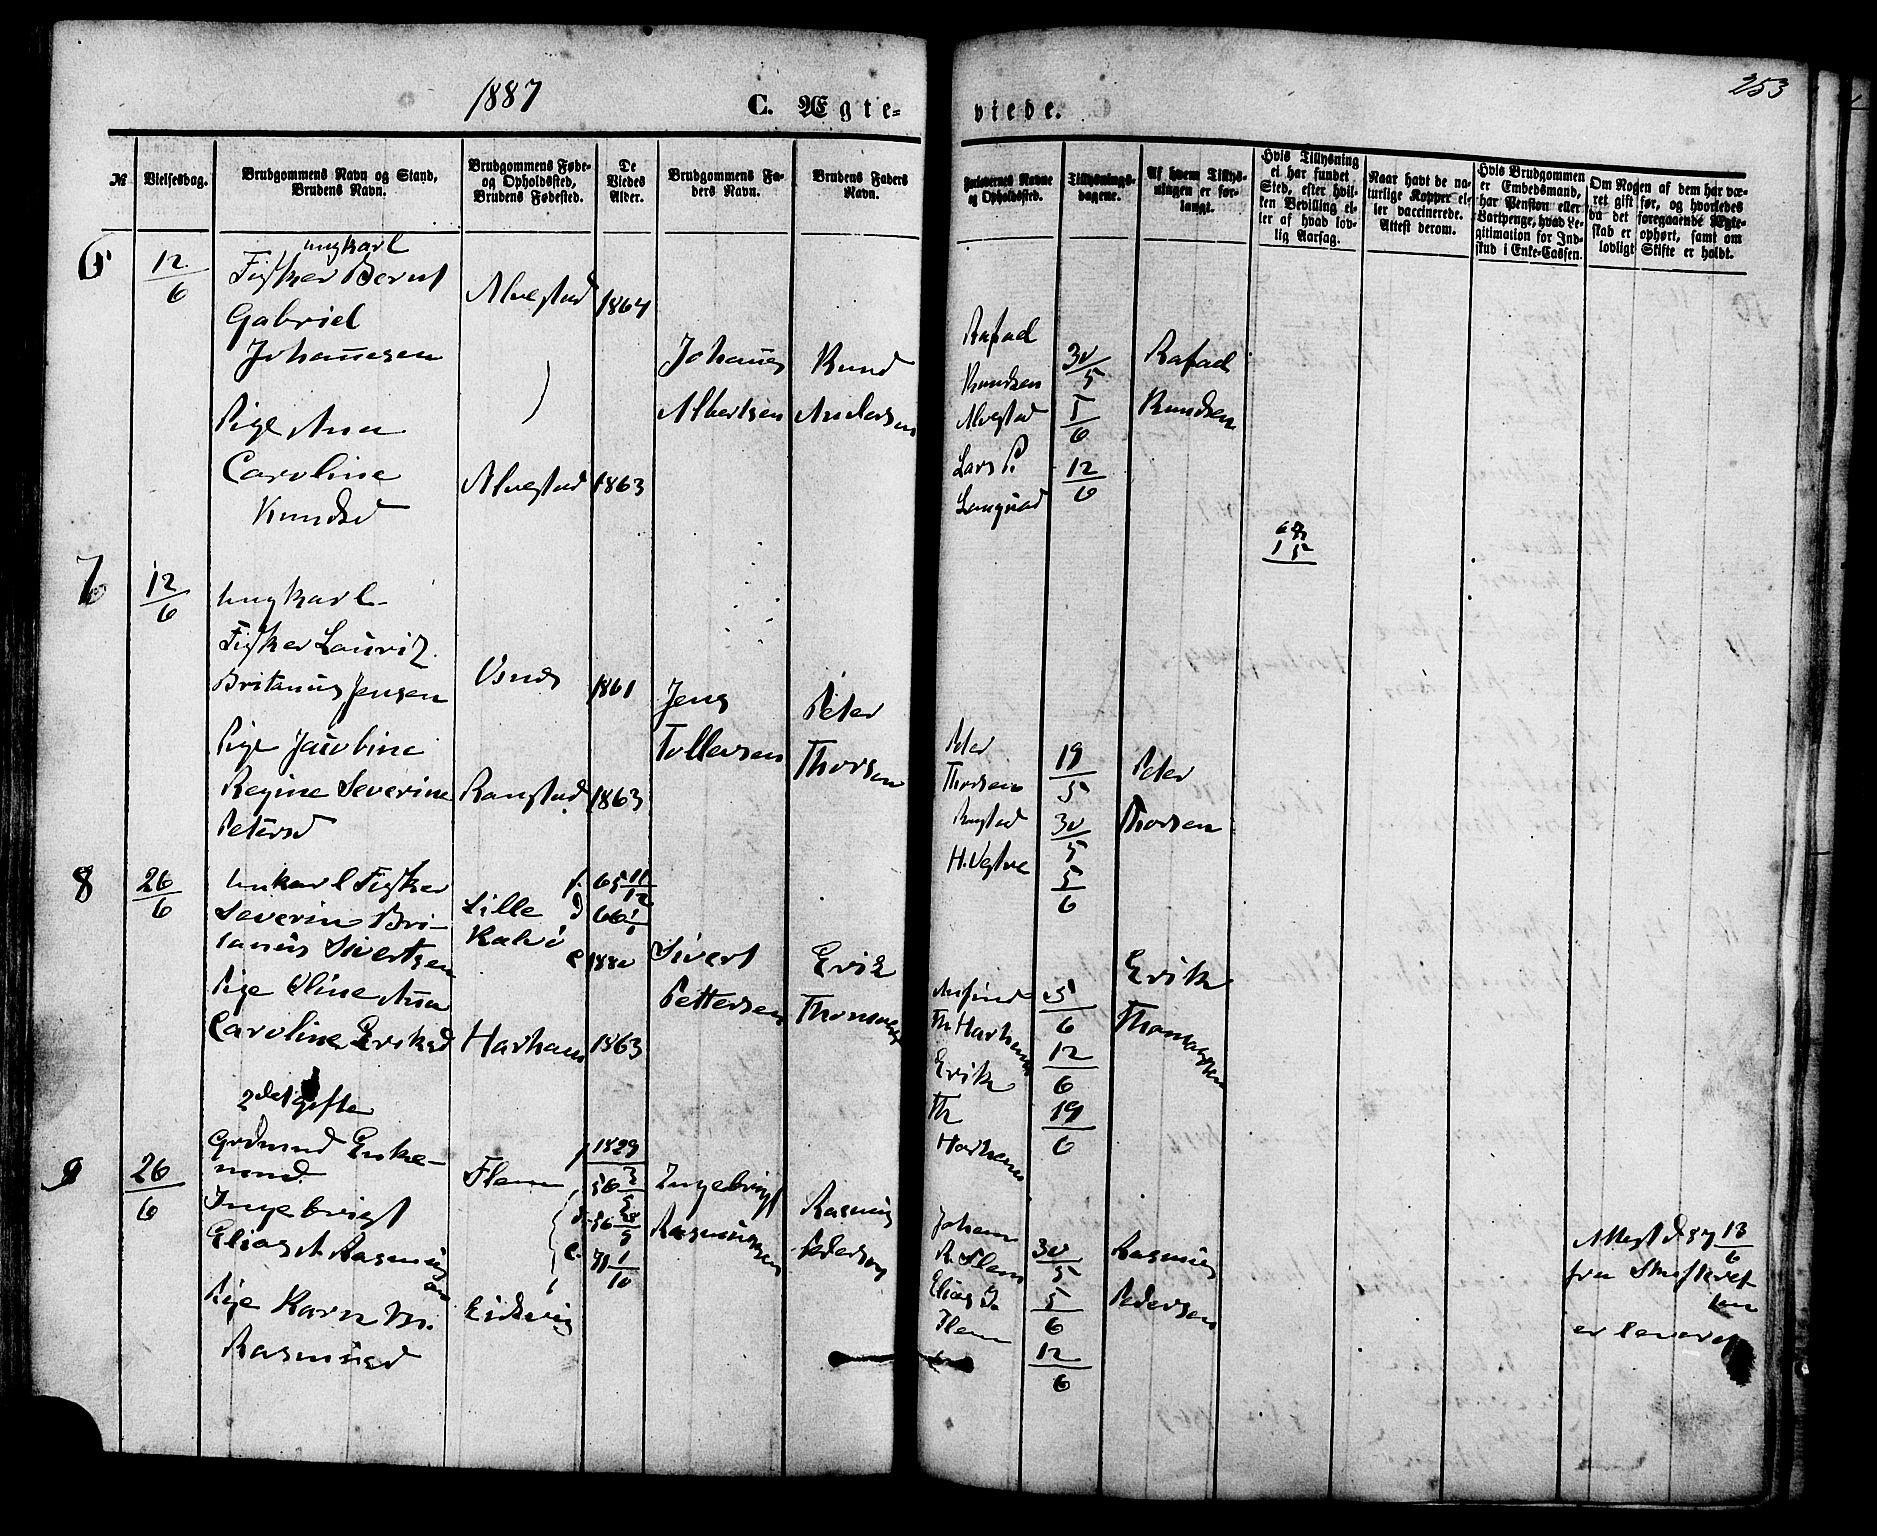 1887
C. Ægte-
viede.
253
№
Vielsesdag.
Brudgommens Navn og Stand,
Brudens Navn.
Brudgommens Føde-
og Opholdssted,
Brudens Fødested.
De
Viedes
Alder.
Brudgommens Fa-
ders Navn.
Brudens Faders
Navn.
Forlovernes Navne
og Opholdssted.
Tillysnings-
dagene.
Af hvem Tillys-
ningen er for-
langt.
Hvis Tillysning
ei har fundet
Sted, efter hvil-
ken Bevilling el-
ler af hvad lov-
lig Aarsag.
Naar havt de na-
turlige Kopper el-
ler vaccinerede.
Attest derom.
Hvis Brudgommen
er Embedsmand,
har Pension eller
Vartpenge, hvad Le-
gitimation for Ind-
skud i Enke-Cassen.
Om Nogen af dem har væ-
ret gift før, og hvorledes
da det foregaaende Ægte-
skab er ophørt, samt om
lovligt Skifte er holdt.
6
12/6
Ungkarl
Fisker Bernt
Gabriel
Johannesen
Pige Ana
Caroline
Knudsd
Alvestad
Alvestad
1864
1863
Johanes
Albertsen
Knud
Andersen
Rafael
Knudsen
Alvestad
Lars P.
Longvad
30/5
5/6
12/6
Rafael
Knudsen
7
12/6
Ungkarl
Fisker Lauritz
Britanus Jensen
Pige Jacobine
Regine Severine
Petersd
Ranstad
1861
1863
Jens
Tollevsen
Peter
Thorsen
Peter
Thorsen
Ranstad
H. Vestre
19/5
30/5
5/6
Peter
Thorsen
8
26/6
Unkarl Fisker
Severin Bri-
tanus Sivertsen
Pige Oline Ana
Caroline Eriksd
Lille
Kalvø
Harham
f. 65 11/12
d 66 1/1
c 1880
1863
Sivert
Pettersen
Erik
Thomassen
Th Harham
Erik
Th
Harham
5/6
12/6
19/6
Erik
Thomassen
9
26/6
2det gifte
Gadmand Enke-
mand
Ingebrigt
Elias A Rasmus
sen
Pige Karn M.
Rasmusd
Flem
Eidsvig
f 1829
Ingebrigt
Rasmussen
Rasmus
Pedersen
Johan
R. Flem
Elias I.
Flem
30/5
5/6
12/6
Rasmus
Pedersen
Attest d 87 13/6
fra Skifteret
ten
er leveret